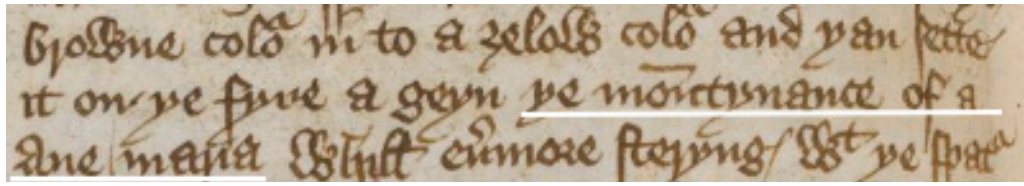 browne colo᷑ in to a ȝelow colo᷑ and yan sette
it on ye fyre a geyn ye mōntynance of a
aue maria whilſt eu̾more steryng / wᵗ ye spatᵃ